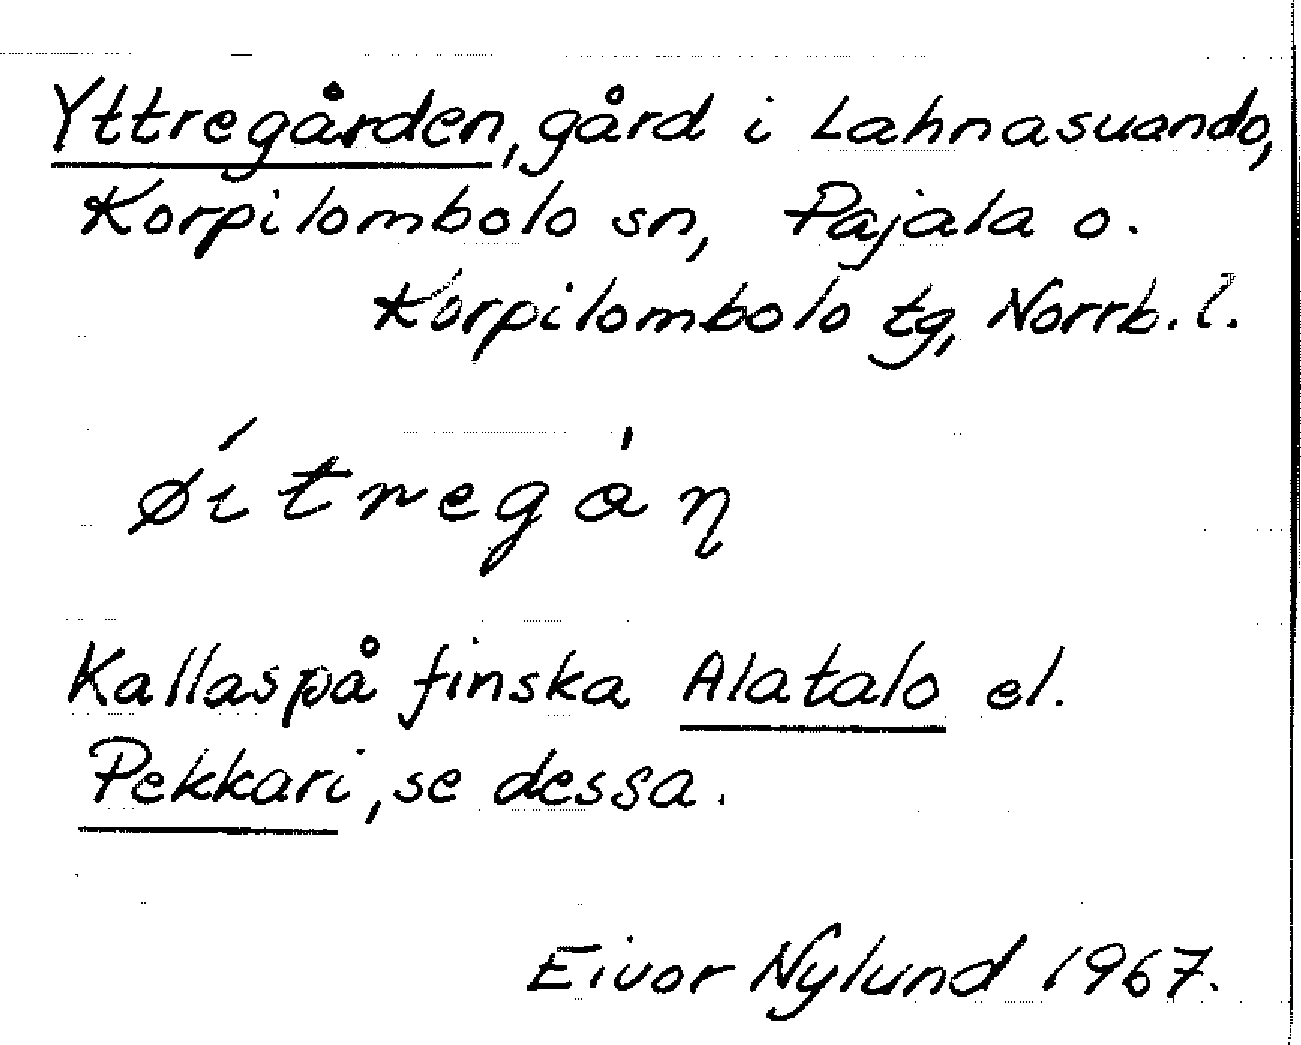 Yttregården, gård i Lahnasuando,
Korpilombolo sn, Pajala o.
Korpilombolo tg, Norrb. l.
Kallas på finska Alatalo el.
Pekkari, se dessa.
Eivor Nylund 1967.